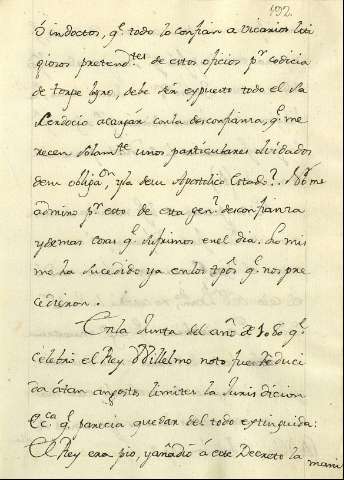 192.
ó indoctos, q.e todo lo confian a vicarios liti
giosos pretend.tes de estos oficios p.r codicia
de torpe lucro, debe ser expuesto todo el Sa
cerdocio a cargar con la desconfianza, q.e me
recen solam.te unos particulares olvidados
de su obliga.on, y la de su Apostolico Estado?. No me
admiro p.r esto de esta gen.l desconfianza
y demas cosas q.e sufrimos en el dia. Lo mis
mo ha sucedido ya en los tpõs q.e nos pre
cedieron.
En la Junta del año de 1080 q.e
celebró el Rey Willelmo noto fue reduci
da á tan angostos limites la Jurisdicion
Ec.ca q.e parecia quedar del todo extinguida:
El Rey era pio, y añadió á este Decreto la mani